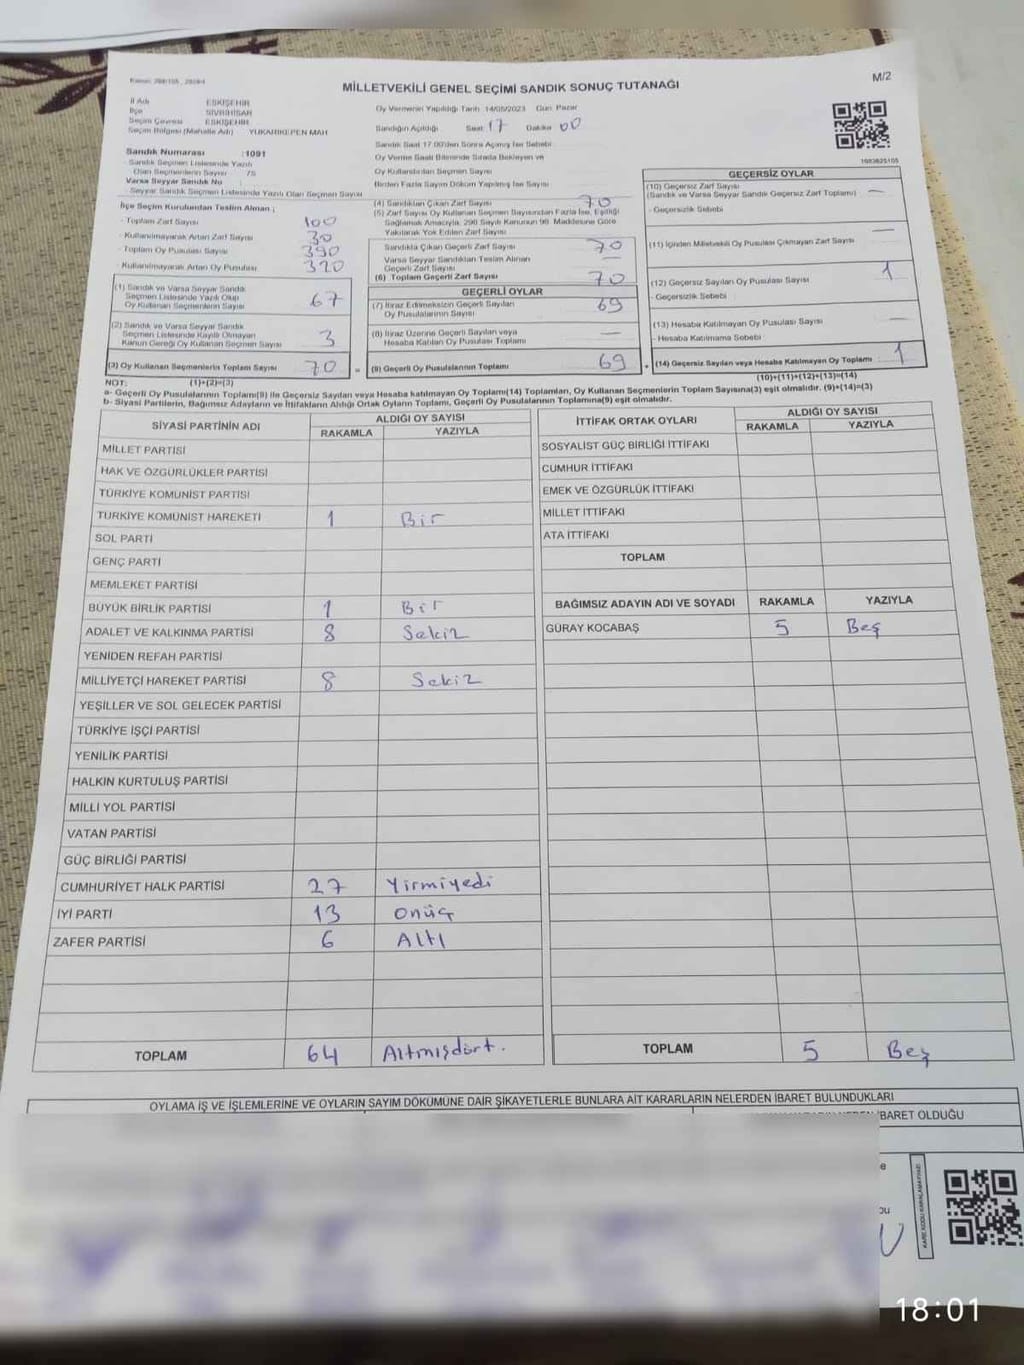 MİLLETVEKİLİ GENEL SEÇİMİ SANDIK SONUÇ TUTANAĞI
M/2
İl Adı ESKİŞEHİR
İlçe SİVRİHİSAR
Seçim Çevresi ESKİŞEHİR
Seçim Bölgesi (Mahalle Adı) YUKARIKEPEN MAH
Sandık Numarası :1091
Sandık Seçmen Listesinde Yazılı
Olan Seçmenlerin Sayısı 75
Varsa Seyyar Sandık No :
Seyyar Sandık Seçmen Listesinde Yazılı Olan Seçmen Sayısı
Oy Vermenin Yapıldığı Tarih 14/05/2023 Gün Pazar
Sandığın Açıldığı Saat 17 Dakika 00
Sandık Saat 17.00'den Sonra Açılmış İse Sebebi
Oy Verme Saati Bitiminde Sırada Bekleyen ve
Oy Kullandırılan Seçmen Sayısı
Birden Fazla Sayım Döküm Yapılmış İse Sayısı
1083625105
İlçe Seçim Kurulundan Teslim Alınan ;
- Toplam Zarf Sayısı 100
- Kullanılmayarak Artan Zarf Sayısı 30
- Toplam Oy Pusulası Sayısı 390
- Kullanılmayarak Artan Oy Pusulası 320
(1) Sandık ve Varsa Seyyar Sandık
Seçmen Listesinde Yazılı Olup
Oy Kullanan Seçmenlerin Sayısı 67
(2) Sandık ve Varsa Seyyar Sandık
Seçmen Listesinde Kayıtlı Olmayan
Kanun Gereği Oy Kullanan Seçmen Sayısı 3
(3) Oy Kullanan Seçmenlerin Toplam Sayısı 70
(4) Sandıktan Çıkan Zarf Sayısı 70
(5) Zarf Sayısı Oy Kullanan Seçmen Sayısından Fazla İse, Eşitliği
Sağlamak Amacıyla, 298 Sayılı Kanunun 98. Maddesine Göre
Yakılarak Yok Edilen Zarf Sayısı
Sandıkta Çıkan Geçerli Zarf Sayısı 70
Varsa Seyyar Sandıktan Teslim Alınan
Geçerli Zarf Sayısı —
(6) Toplam Geçerli Zarf Sayısı 70
GEÇERLİ OYLAR
(7) İtiraz Edilmeksizin Geçerli Sayılan
Oy Pusulalarının Sayısı 69
(8) İtiraz Üzerine Geçerli Sayılan veya
Hesaba Katılan Oy Pusulası Toplamı —
= (9) Geçerli Oy Pusulalarının Toplamı 69
GEÇERSİZ OYLAR
(10) Geçersiz Zarf Sayısı
(Sandık ve Varsa Seyyar Sandık Geçersiz Zarf Toplamı) —
- Geçersizlik Sebebi
(11) İçinden Milletvekili Oy Pusulası Çıkmayan Zarf Sayısı —
(12) Geçersiz Sayılan Oy Pusulası Sayısı 1
- Geçersizlik Sebebi
(13) Hesaba Katılmayan Oy Pusulası Sayısı —
- Hesaba Katılmama Sebebi
+ (14) Geçersiz Sayılan veya Hesaba Katılmayan Oy Toplamı 1
(10)+(11)+(12)+(13)=(14)
NOT: (1)+(2)=(3)
a- Geçerli Oy Pusulalarının Toplamı(9) ile Geçersiz Sayılan veya Hesaba katılmayan Oy Toplamı(14) Toplamları, Oy Kullanan Seçmenlerin Toplam Sayısına(3) eşit olmalıdır. (9)+(14)=(3)
b- Siyasi Partilerin, Bağımsız Adayların ve İttifakların Aldığı Ortak Oyların Toplamı, Geçerli Oy Pusulalarının Toplamına(9) eşit olmalıdır.
SİYASİ PARTİNİN ADI ALDIĞI OY SAYISI
RAKAMLA YAZIYLA
MİLLET PARTİSİ
HAK VE ÖZGÜRLÜKLER PARTİSİ
TÜRKİYE KOMÜNİST PARTİSİ
TÜRKİYE KOMÜNİST HAREKETİ 1 Bir
SOL PARTİ
GENÇ PARTİ
MEMLEKET PARTİSİ
BÜYÜK BİRLİK PARTİSİ 1 Bir
ADALET VE KALKINMA PARTİSİ 8 Sekiz
YENİDEN REFAH PARTİSİ
MİLLİYETÇİ HAREKET PARTİSİ 8 Sekiz
YEŞİLLER VE SOL GELECEK PARTİSİ
TÜRKİYE İŞÇİ PARTİSİ
YENİLİK PARTİSİ
HALKIN KURTULUŞ PARTİSİ
MİLLİ YOL PARTİSİ
VATAN PARTİSİ
GÜÇ BİRLİĞİ PARTİSİ
CUMHURİYET HALK PARTİSİ 27 Yirmiyedi
İYİ PARTİ 13 onüç
ZAFER PARTİSİ 6 Altı
TOPLAM 64 Altmışdört.
İTTİFAK ORTAK OYLARI ALDIĞI OY SAYISI
RAKAMLA YAZIYLA
SOSYALİST GÜÇ BİRLİĞİ İTTİFAKI
CUMHUR İTTİFAKI
EMEK VE ÖZGÜRLÜK İTTİFAKI
MİLLET İTTİFAKI
ATA İTTİFAKI
TOPLAM
BAĞIMSIZ ADAYIN ADI VE SOYADI RAKAMLA YAZIYLA
GÜRAY KOCABAŞ 5 Beş
TOPLAM 5 Beş
OYLAMA İŞ VE İŞLEMLERİNE VE OYLARIN SAYIM DÖKÜMÜNE DAİR ŞİKAYETLERLE BUNLARA AİT KARARLARIN NELERDEN İBARET BULUNDUKLARI
İBARET OLDUĞU
18:01